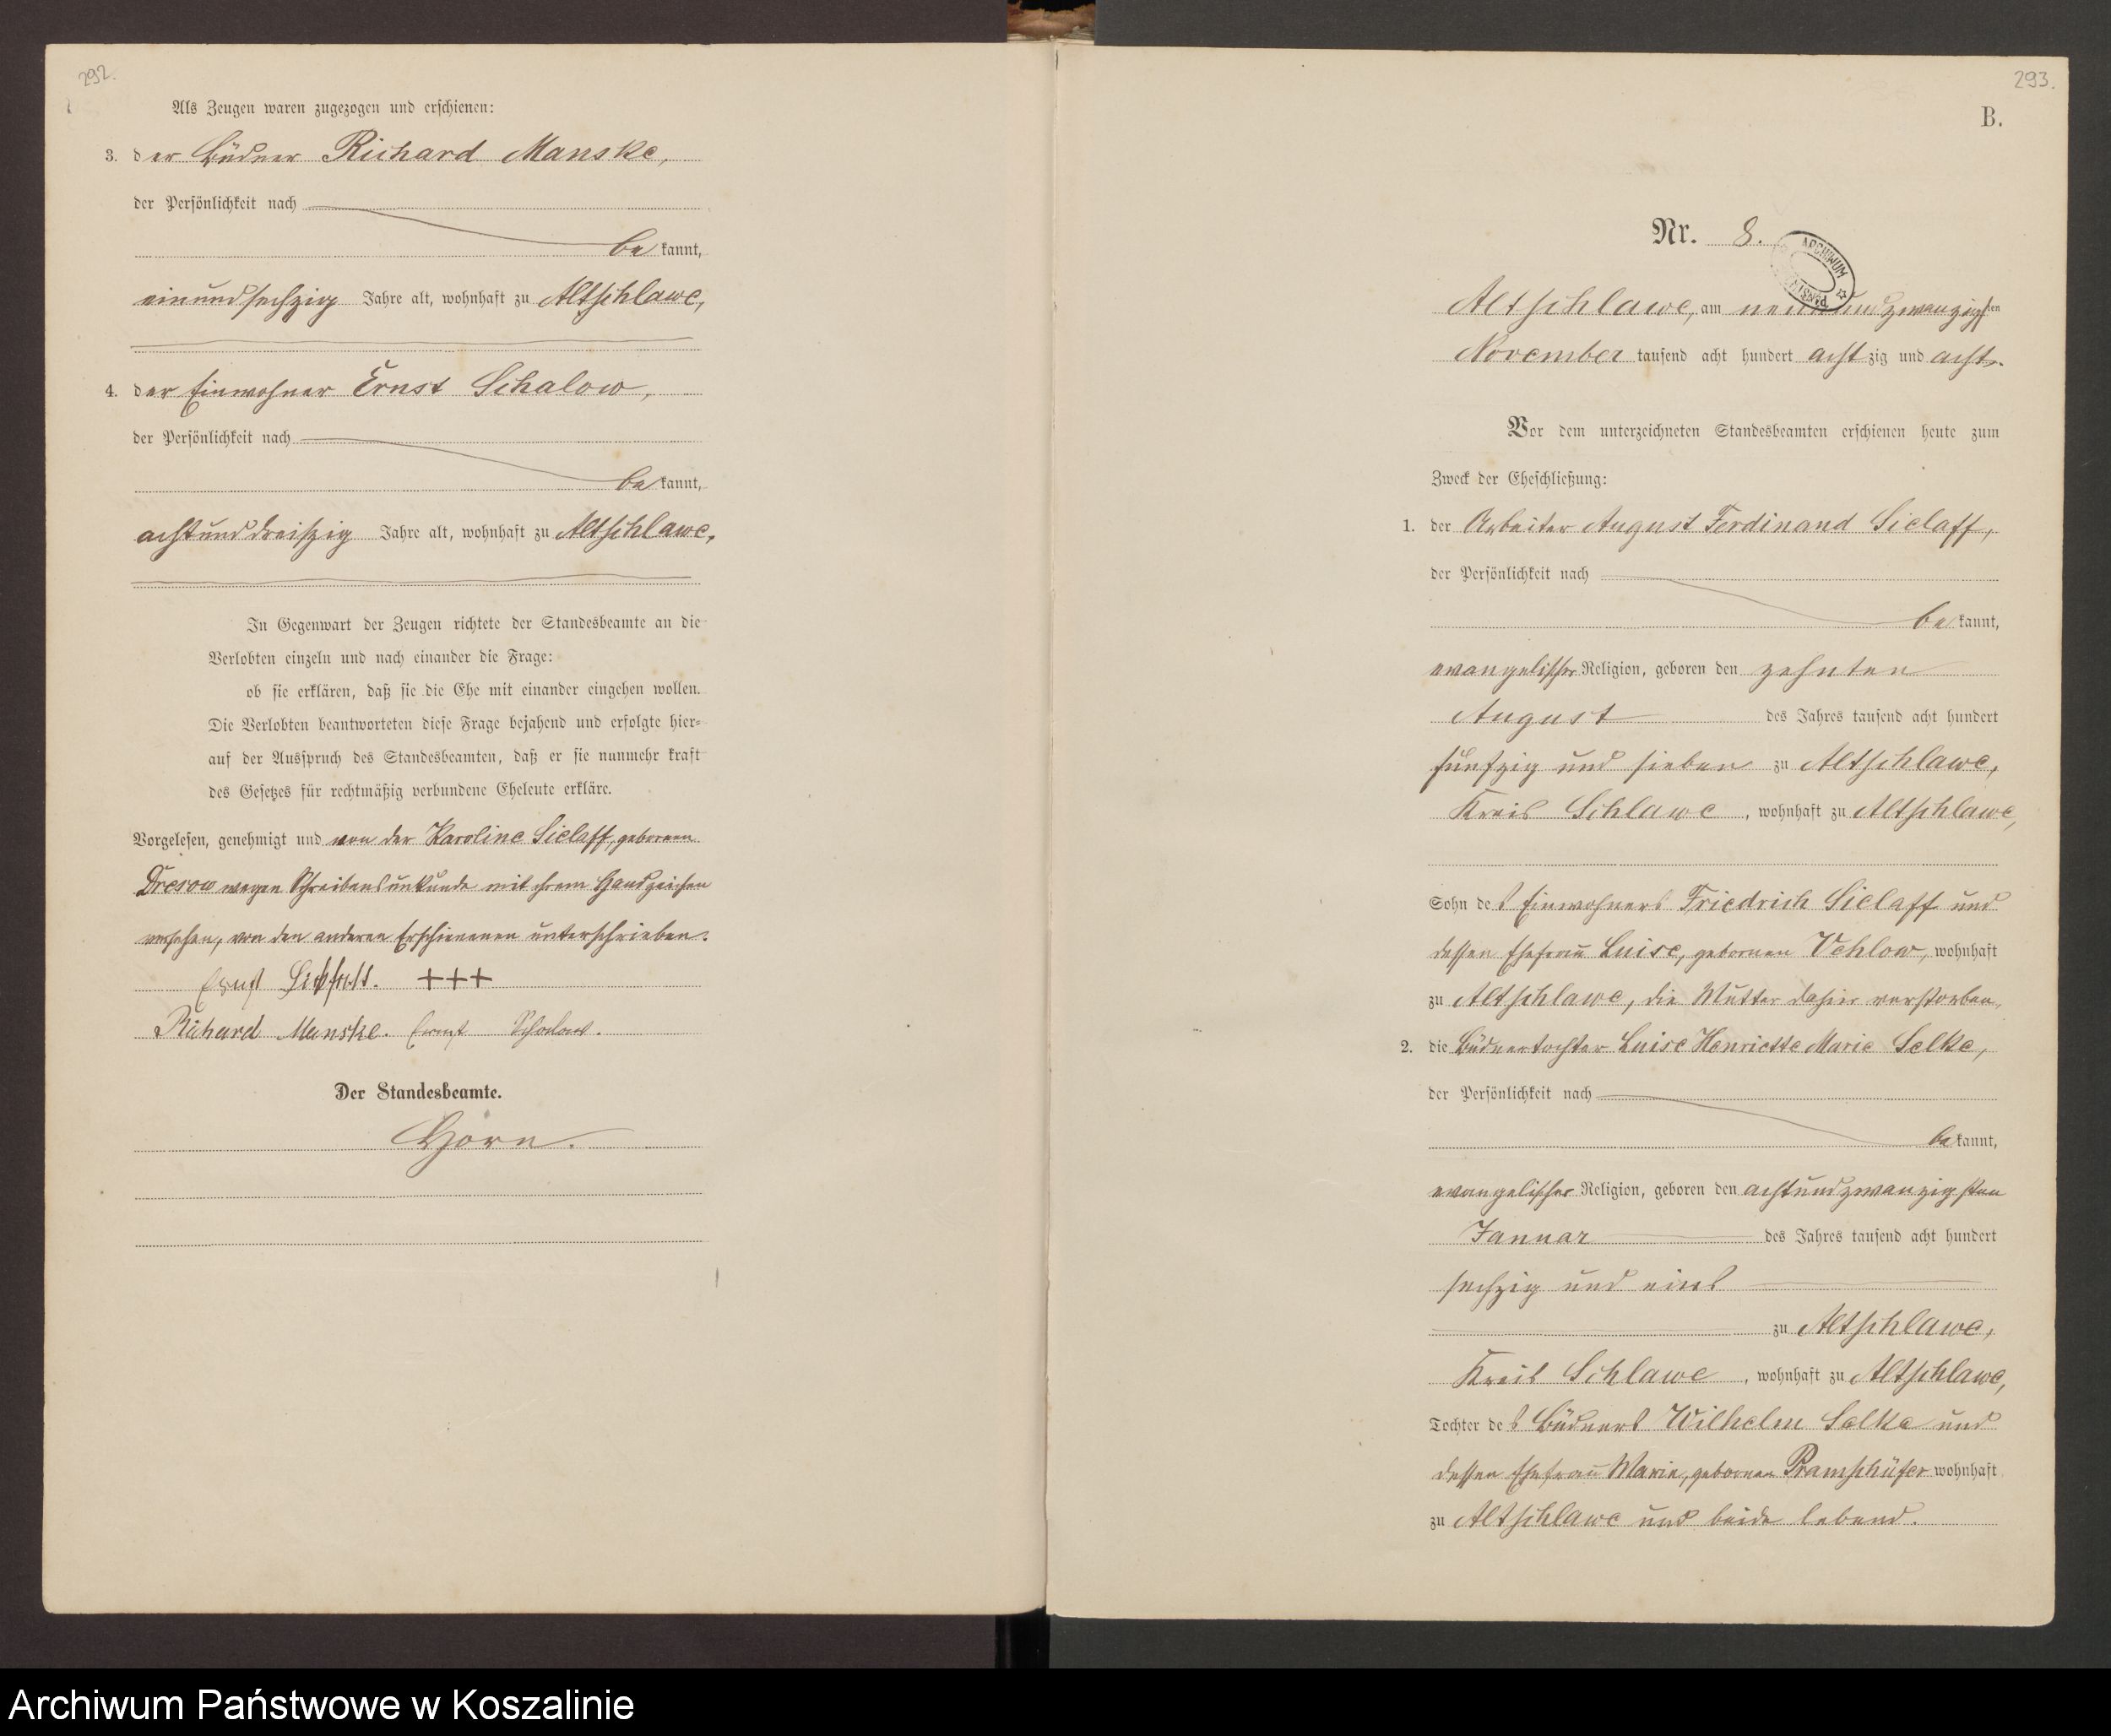 292.
Als Zeugen waren zugezogen und erschienen:
3. der Büdner Richard Manske,
der Persönlichkeit nach
bekannt,
einundsechzig Jahre alt, wohnhaft zu Altschlawe,
4. der Einwohner Ernst Schalow,
der Persönlichkeit nach
bekannt,
achtunddreißig Jahre alt, wohnhaft zu Altschlawe.
In Gegenwart der Zeugen richtete der Standesbeamte an die
Verlobten einzeln und nach einander die Frage:
ob sie erklären, daß sie die Ehe mit einander eingehen wollen.
Die Verlobten beantworteten diese Frage bejahend und erfolgte hier-
auf der Ausspruch des Standesbeamten, daß er sie nunmehr kraft
des Gesetzes für rechtmäßig verbundene Eheleute erkläre.
Vorgelesen, genehmigt und von der Karoline Sielaff, geborenen
Dresow wegen Schreibensunkunde mit ihrem Handzeichen
versehen, von den anderen Erschienenen unterschrieben.
Ernst +++
Richard Manske. Ernst Schalow.
Der Standesbeamte.
Horn.
293.
B.
Nr. 8.
ARCHIWUM
Altschlawe, am neunundzwanzigsten
November tausend acht hundert achtzig und acht.
Vor dem unterzeichneten Standesbeamten erschienen heute zum
Zweck der Eheschließung:
1. der Arbeiter August Ferdinand Sielaff,
der Persönlichkeit nach
bekannt,
evangelischer Religion, geboren den zehnten
August des Jahres tausend acht hundert
fünfzig und sieben zu Altschlawe,
Kreis Schlawe, wohnhaft zu Altschlawe,
Sohn des Einwohners Friedrich Sielaff und
dessen Ehefrau Luise, gebornen Vehlow, wohnhaft
zu Altschlawe, die Mutter dahier verstorben.
2. die Büdnertochter Luise Henriette Marie Selke,
der Persönlichkeit nach
bekannt,
evangelischer Religion, geboren den achtundzwanzigsten
Januar des Jahres tausend acht hundert
sechzig und eins
zu Altschlawe,
Kreis Schlawe, wohnhaft zu Altschlawe,
Tochter des Büdners Wilhelm Selke und
dessen Ehefrau Marie, gebornen Pramschüfer wohnhaft
zu Altschlawe und beide lebend.
Archiwum Państwowe w Koszalinie